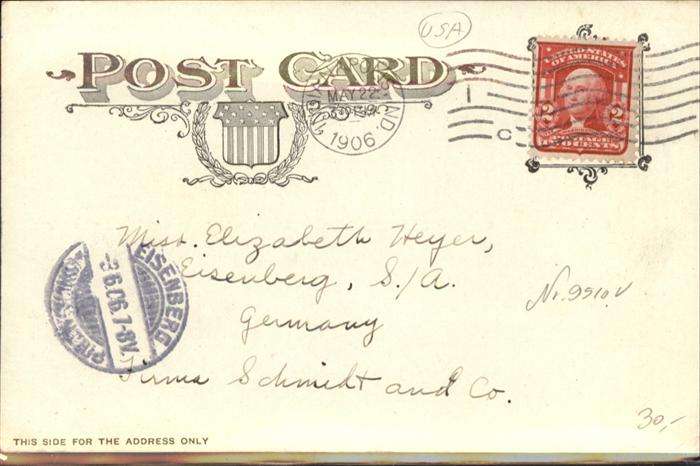 USA
POST CARD
MAY 22
1906
IND.
UNITED STATES
OF AMERICA
2 2
TWO CENTS
Miss. Elizabeth Heyer,
Eisenberg, S./A.
Germany
Firma Schmidt and Co.
EISENBERG
-3 6.06.7-8V.
Nr. 9910 V
30,-
THIS SIDE FOR THE ADDRESS ONLY